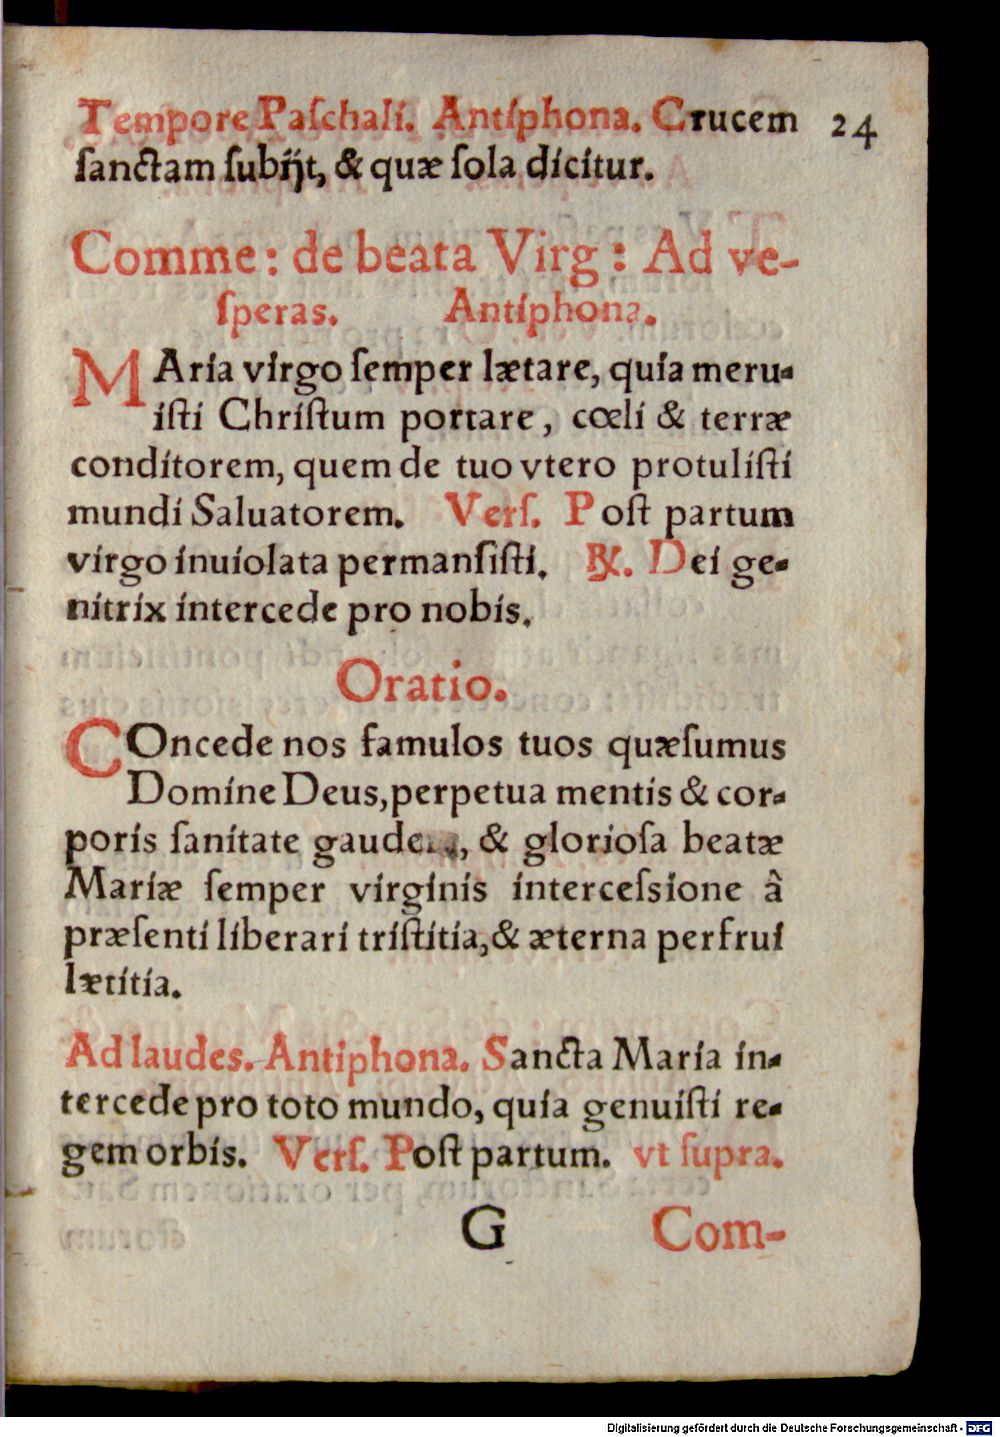 Tempore Paſchali. Antiphona. Crucem 24
ſanctam ſubijt, & quæ ſola dicitur.
Comme: de beata Virg: Ad ve-
ſperas. Antiphona.
MAria virgo ſemper lætare, quia meru-
iſti Chriſtum portare, cœli & terræ
conditorem, quem de tuo vtero protuliſti
mundi Saluatorem. Verſ. Poſt partum
virgo inuiolata permanſiſti. ℟. Dei ge-
nitrix intercede pro nobis.
Oratio.
COncede nos famulos tuos quæſumus
Domine Deus, perpetua mentis & cor-
poris ſanitate , & glorioſa beatæ
Mariæ ſemper virginis interceſsione â
præſenti liberari triſtitia, & æterna perfrui
lætitia.
Ad laudes. Antiphona. Sancta Maria in-
tercede pro toto mundo, quia genuiſti re-
gem orbis. Verſ. Poſt partum. vt ſupra.
G Com-
Digitalisierung gefördert durch die Deutsche Forschungsgemeinschaft - DFG